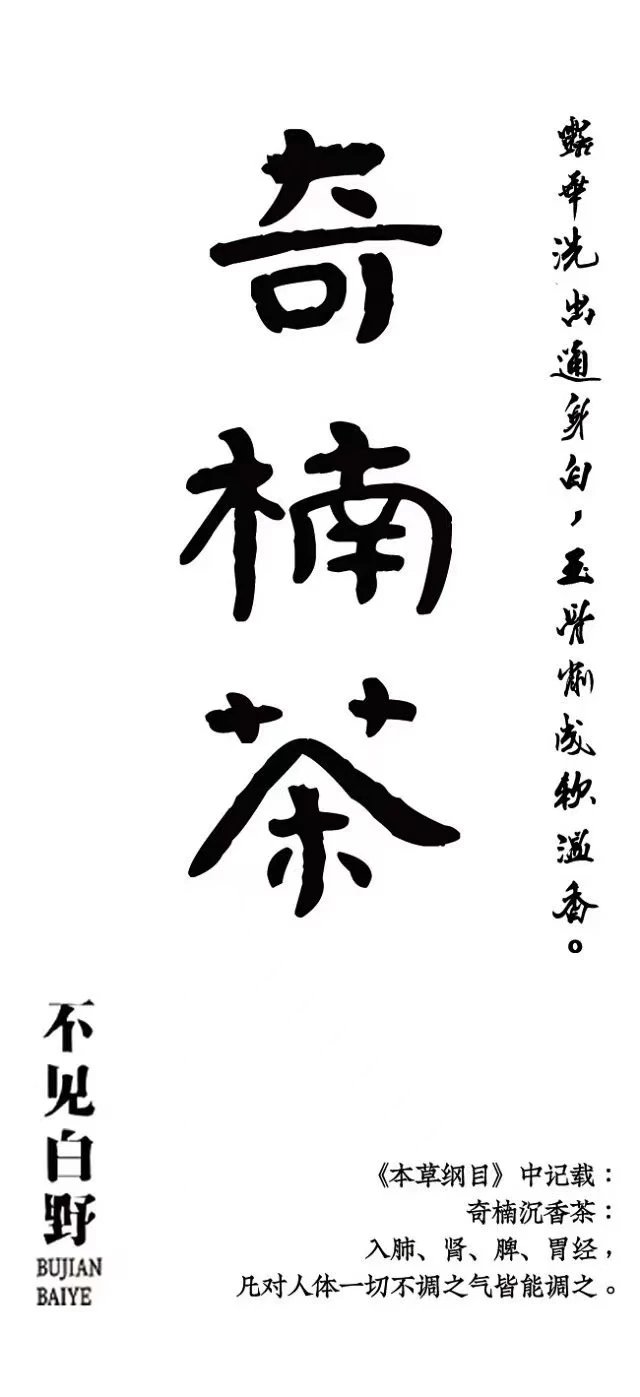 奇楠茶
露華洗出通身白，玉骨削成软香。
不见白野
BUJIAN
BAIYE
《本草纲目》中记载：
奇楠沉香茶：
入肺、肾、脾、胃经，
凡对人体一切不调之气皆能调之。